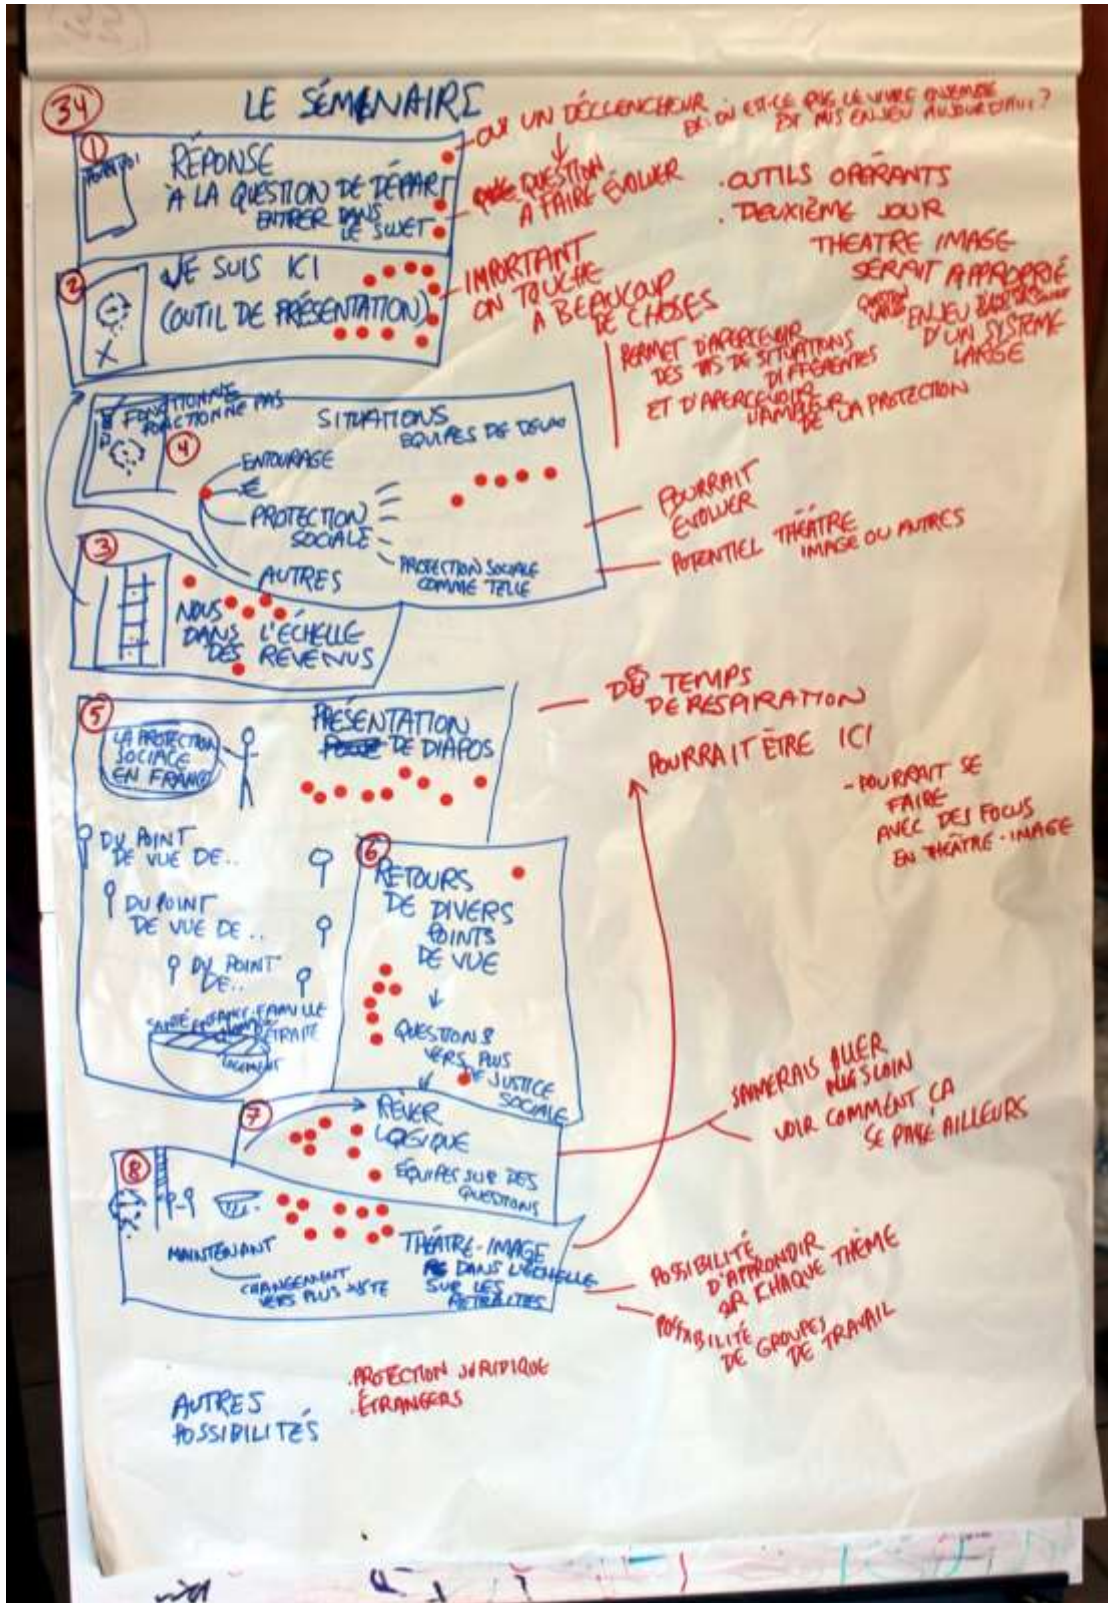 34
LE SÉMINAIRE
1
RÉPONSE
À LA QUESTION DE DÉPART
ENTRER DANS
LE SUJET
OUI UN DÉCLENCHEUR
EX: OÙ EST-CE QUE LE VIVRE ENSEMBLE
EST MIS EN JEU AUJOURD'HUI?
QUESTION
À FAIRE ÉVOLUER
. OUTILS OPÉRANTS
. DEUXIÈME JOUR
THEATRE IMAGE
SERAIT APPROPRIÉ
ENJEU
D'UN SYSTÈME
LARGE
2
JE SUIS ICI
(OUTIL DE PRÉSENTATION)
IMPORTANT
ON TOUCHE
À BEAUCOUP
DE CHOSES
PERMET D'APERCEVOIR
DES TAS DE SITUATIONS
DIFFÉRENTES
ET D'APERCEVOIR
L'AMPLEUR
DE LA PROTECTION
FONCTIONNE
FONCTIONNE PAS
4
SITUATIONS
EQUIPES DE DEUX
ENTOURAGE
€
PROTECTION
SOCIALE
AUTRES
PROTECTION SOCIALE
COMME TELLE
POURRAIT
ÉVOLUER
POTENTIEL THÉÂTRE
IMAGE OU AUTRES
3
NOUS
DANS L'ÉCHELLE
DES REVENUS
5
LA PROTECTION
SOCIALE
EN FRANCE
PRÉSENTATION
DE DIAPOS
TEMPS
DE RESPIRATION
POURRAIT ÊTRE ICI
- POURRAIT SE
FAIRE
AVEC DES FOCUS
EN THÉÂTRE-IMAGE
DU POINT
DE VUE DE..
DU POINT
DE VUE DE..
DU POINT
DE..
SANTÉ
ENFANCE-FAMILLE
RETRAITE
LOGEMENT
6
RETOURS
DE DIVERS
POINTS
DE VUE
QUESTIONS
VERS PLUS
DE JUSTICE
SOCIALE
7
RÊVER
LOGIQUE
ÉQUIPES SUR DES
QUESTIONS
J'AIMERAIS ALLER
PLUS LOIN
VOIR COMMENT ÇA
SE PASSE AILLEURS
8
MAINTENANT
CHANGEMENT
VERS PLUS JUSTE
THÉÂTRE-IMAGE
DANS L'ÉCHELLE
SUR LES
RETRAITES
POSSIBILITÉ
D'APPRONDIR
SUR CHAQUE THÈME
POSSIBILITÉ
DE GROUPES
DE TRAVAIL
AUTRES
POSSIBILITÉS
. PROTECTION JURIDIQUE
. ÉTRANGERS